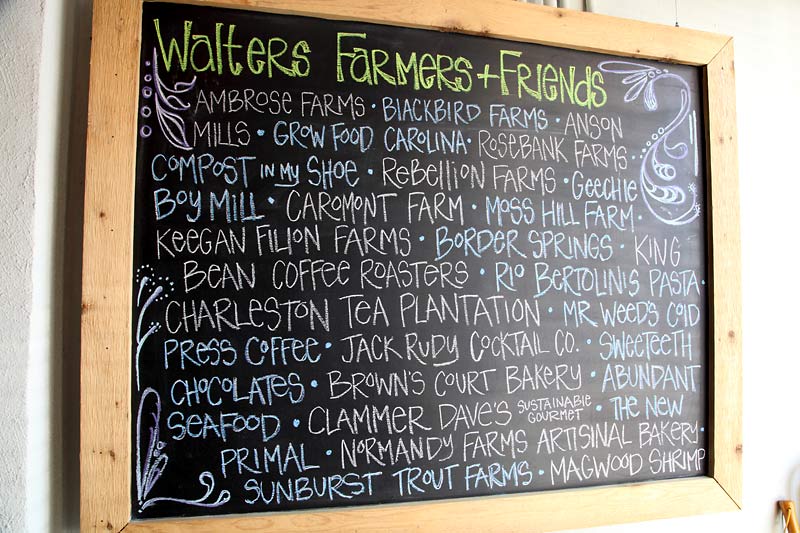 Walters Farmers + Friends
AMBROSE FARMS · BLACKBIRD FARMS · ANSON
MILLS · GROW FOOD CAROLINA · ROSEBANK FARMS ·
COMPOST IN MY SHOE · REBELLION FARMS · GEECHIE
BOY MILL · CAROMONT FARM · MOSS HILL FARM ·
KEEGAN FILION FARMS · BORDER SPRINGS · KING
BEAN COFFEE ROASTERS · RIO BERTOLINIS PASTA ·
CHARLESTON TEA PLANTATION · MR WEED'S COLD
PRESS COFFEE · JACK RUDY COCKTAIL CO. · SWEETEETH
CHOCOLATES · BROWN'S COURT BAKERY · ABUNDANT
SEAFOOD · CLAMMER DAVE'S SUSTAINABLE GOURMET · THE NEW
PRIMAL · NORMANDY FARMS ARTISINAL BAKERY ·
SUNBURST TROUT FARMS · MAGWOOD SHRIMP